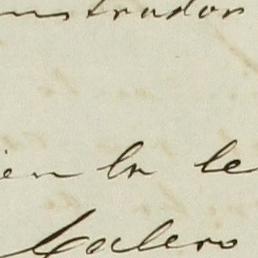 nistrador
ien la le
Calero